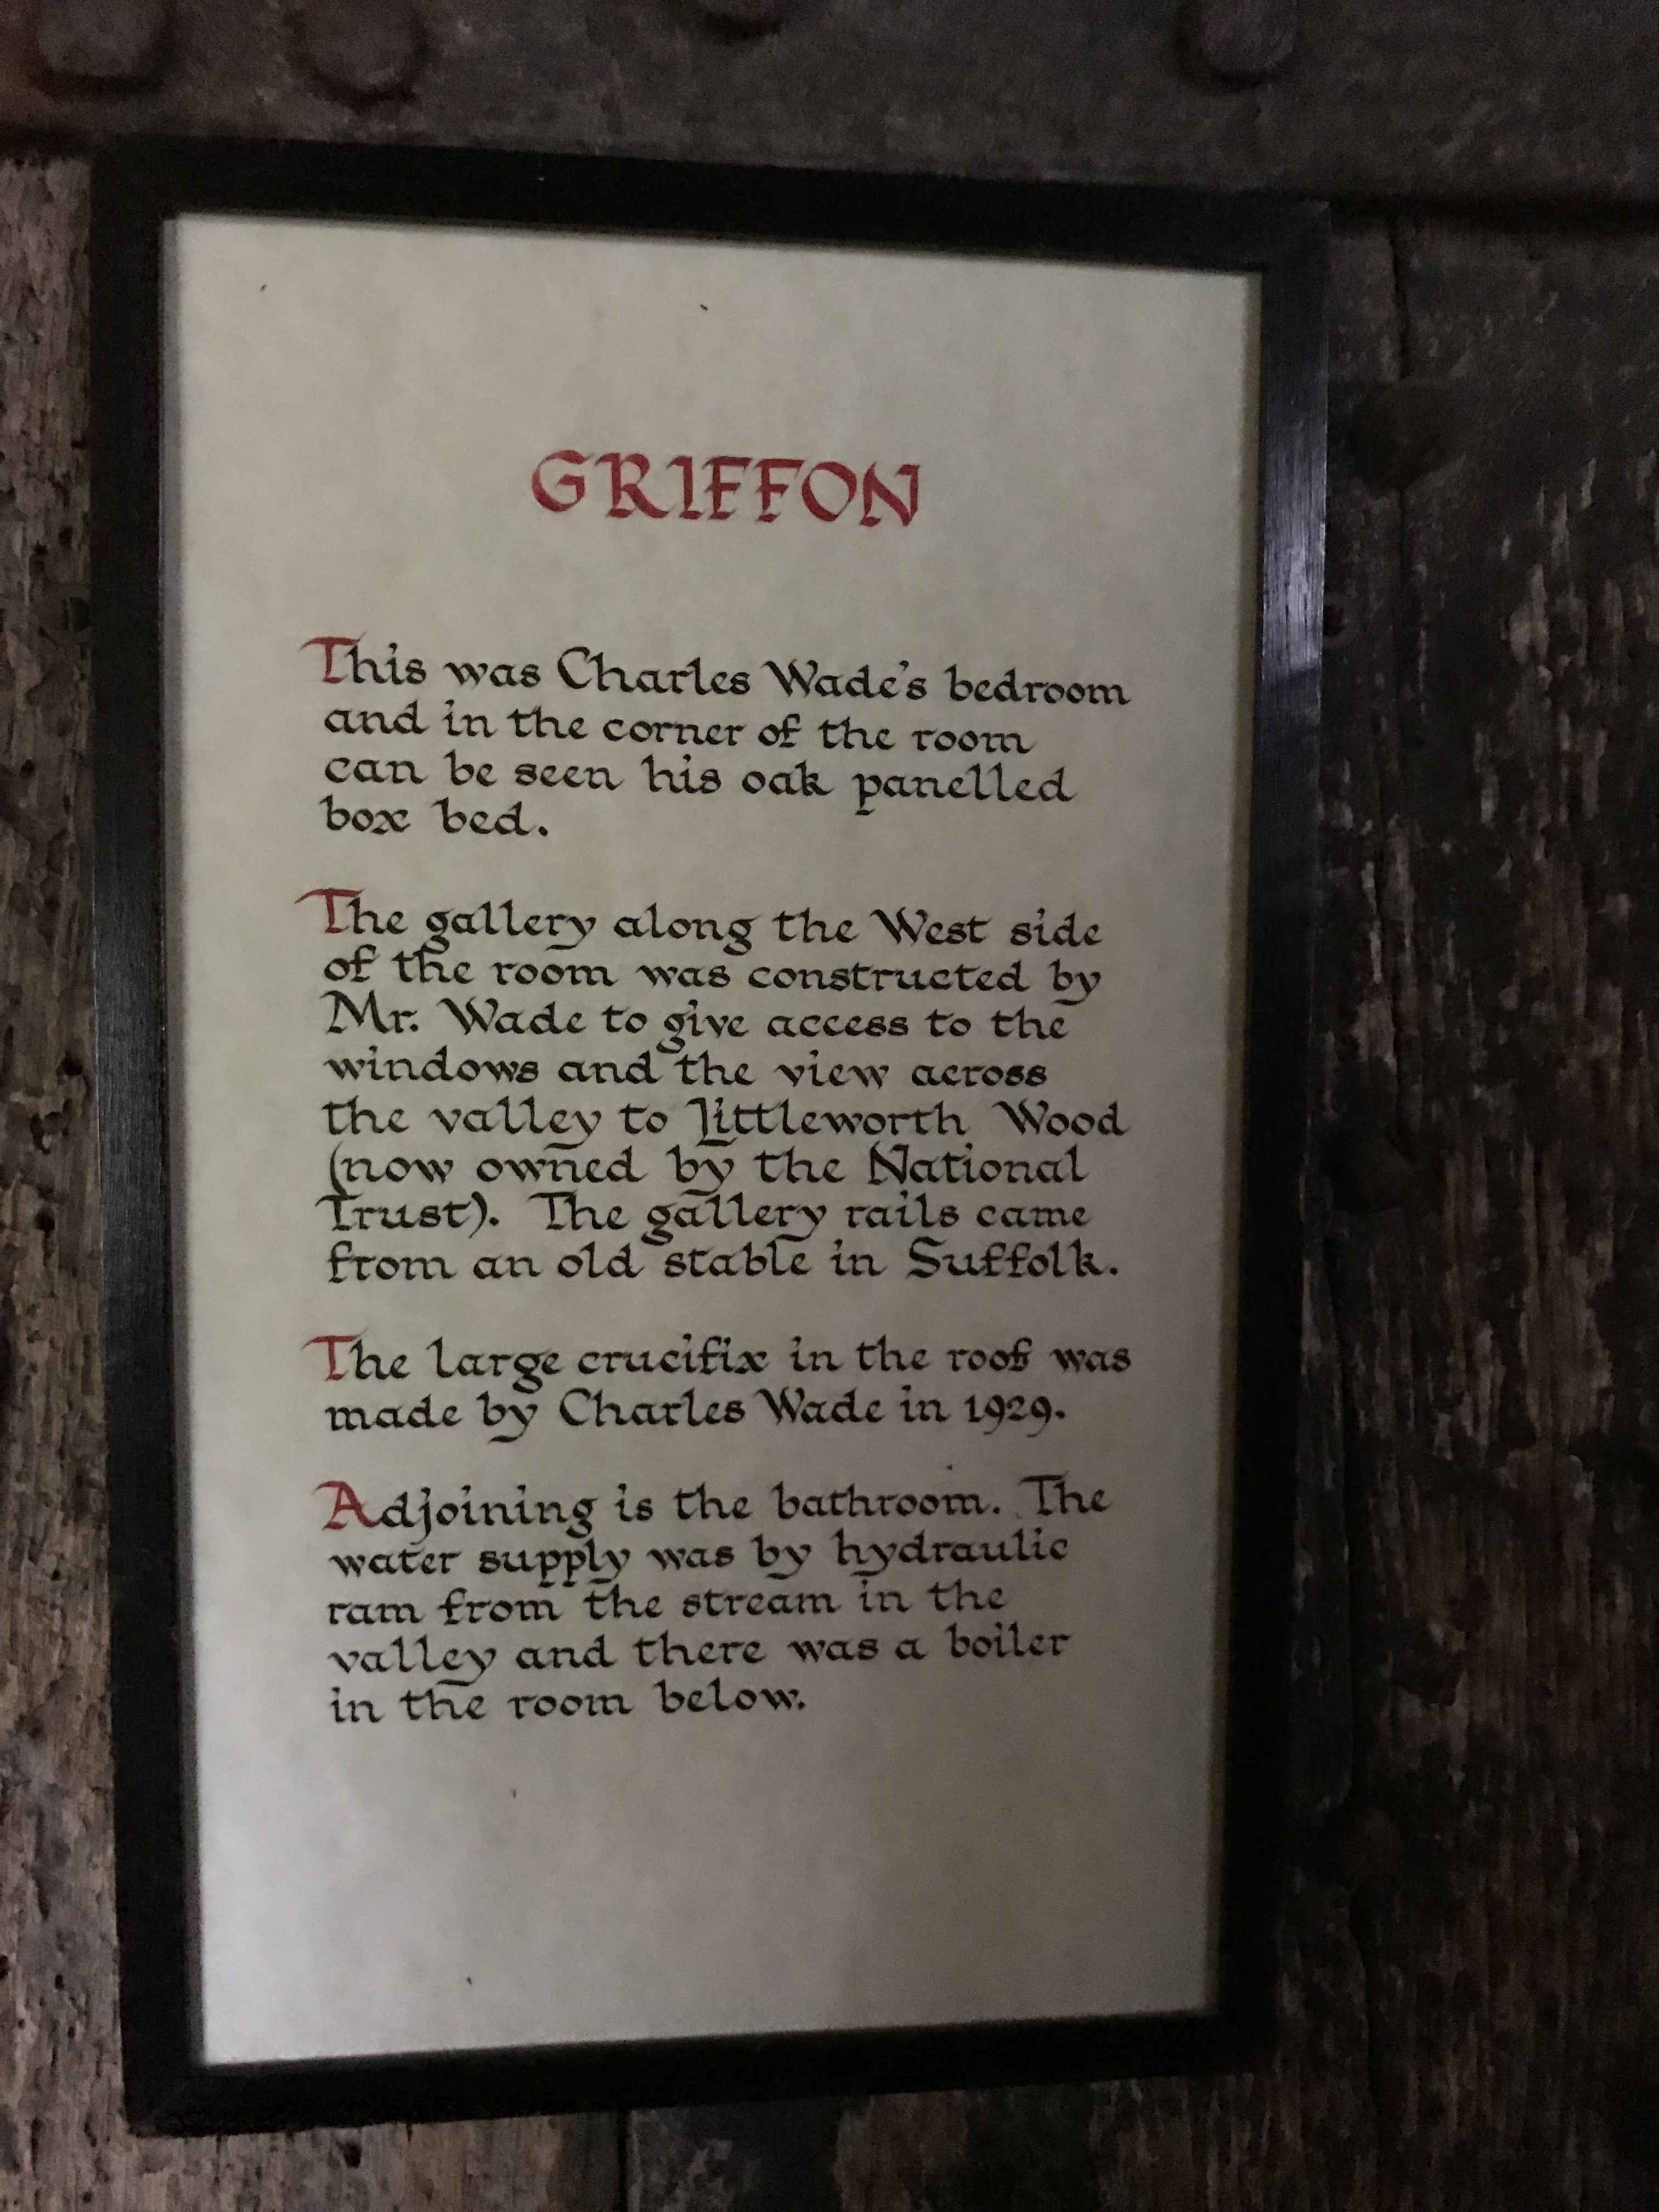 GRIFFON
This was Charles Wade's bedroom
and in the corner of the room
can be seen his oak panelled
box bed.
The gallery along the West side
of the room was constructed by
Mr. Wade to give access to the
windows and the view across
the valley to Littleworth Wood
(now owned by the National
Trust). The gallery rails came
from an old stable in Suffolk.
The large crucifix in the roof was
made by Charles Wade in 1929.
Adjoining is the bathroom. The
water supply was by hydraulic
ram from the stream in the
valley and there was a boiler
in the room below.